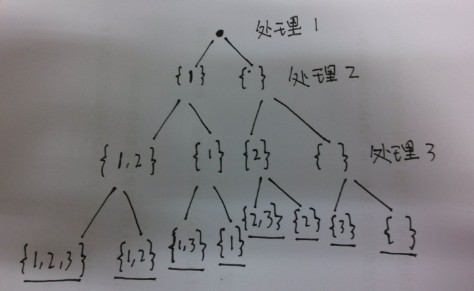 处理1
{1} {} 处理2
{1,2} {1} {2} {} 处理3
{1,2,3} {1,2} {1,3} {1} {2,3} {2} {3} {}